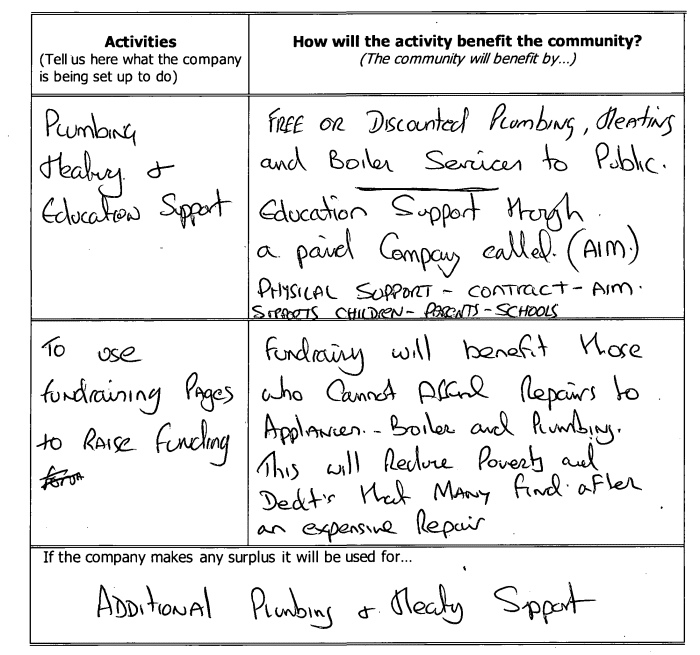 Activities
(Tell us here what the company
is being set up to do)
How will the activity benefit the community?
(The community will benefit by...)
Plumbing
Heating &
Education Support
FREE OR Discounted Plumbing, Heating
and Boiler Services to Public.
Education Support through
a paired Company called. (AIM)
PHYSICAL SUPPORT - CONTRACT - AIM.
SUPPORTS CHILDREN - PARENTS - SCHOOLS
To use
fundraining Pages
to RAISE funding
Fundraising will benefit those
who Cannot Afford Repairs to
Appliances. - Boiler and Plumbing.
This will Reduce Poverty and
Dedt's that MANY find after
an expensive Repair
If the company makes any surplus it will be used for...
ADDITIONAL Plumbing & Heating Support